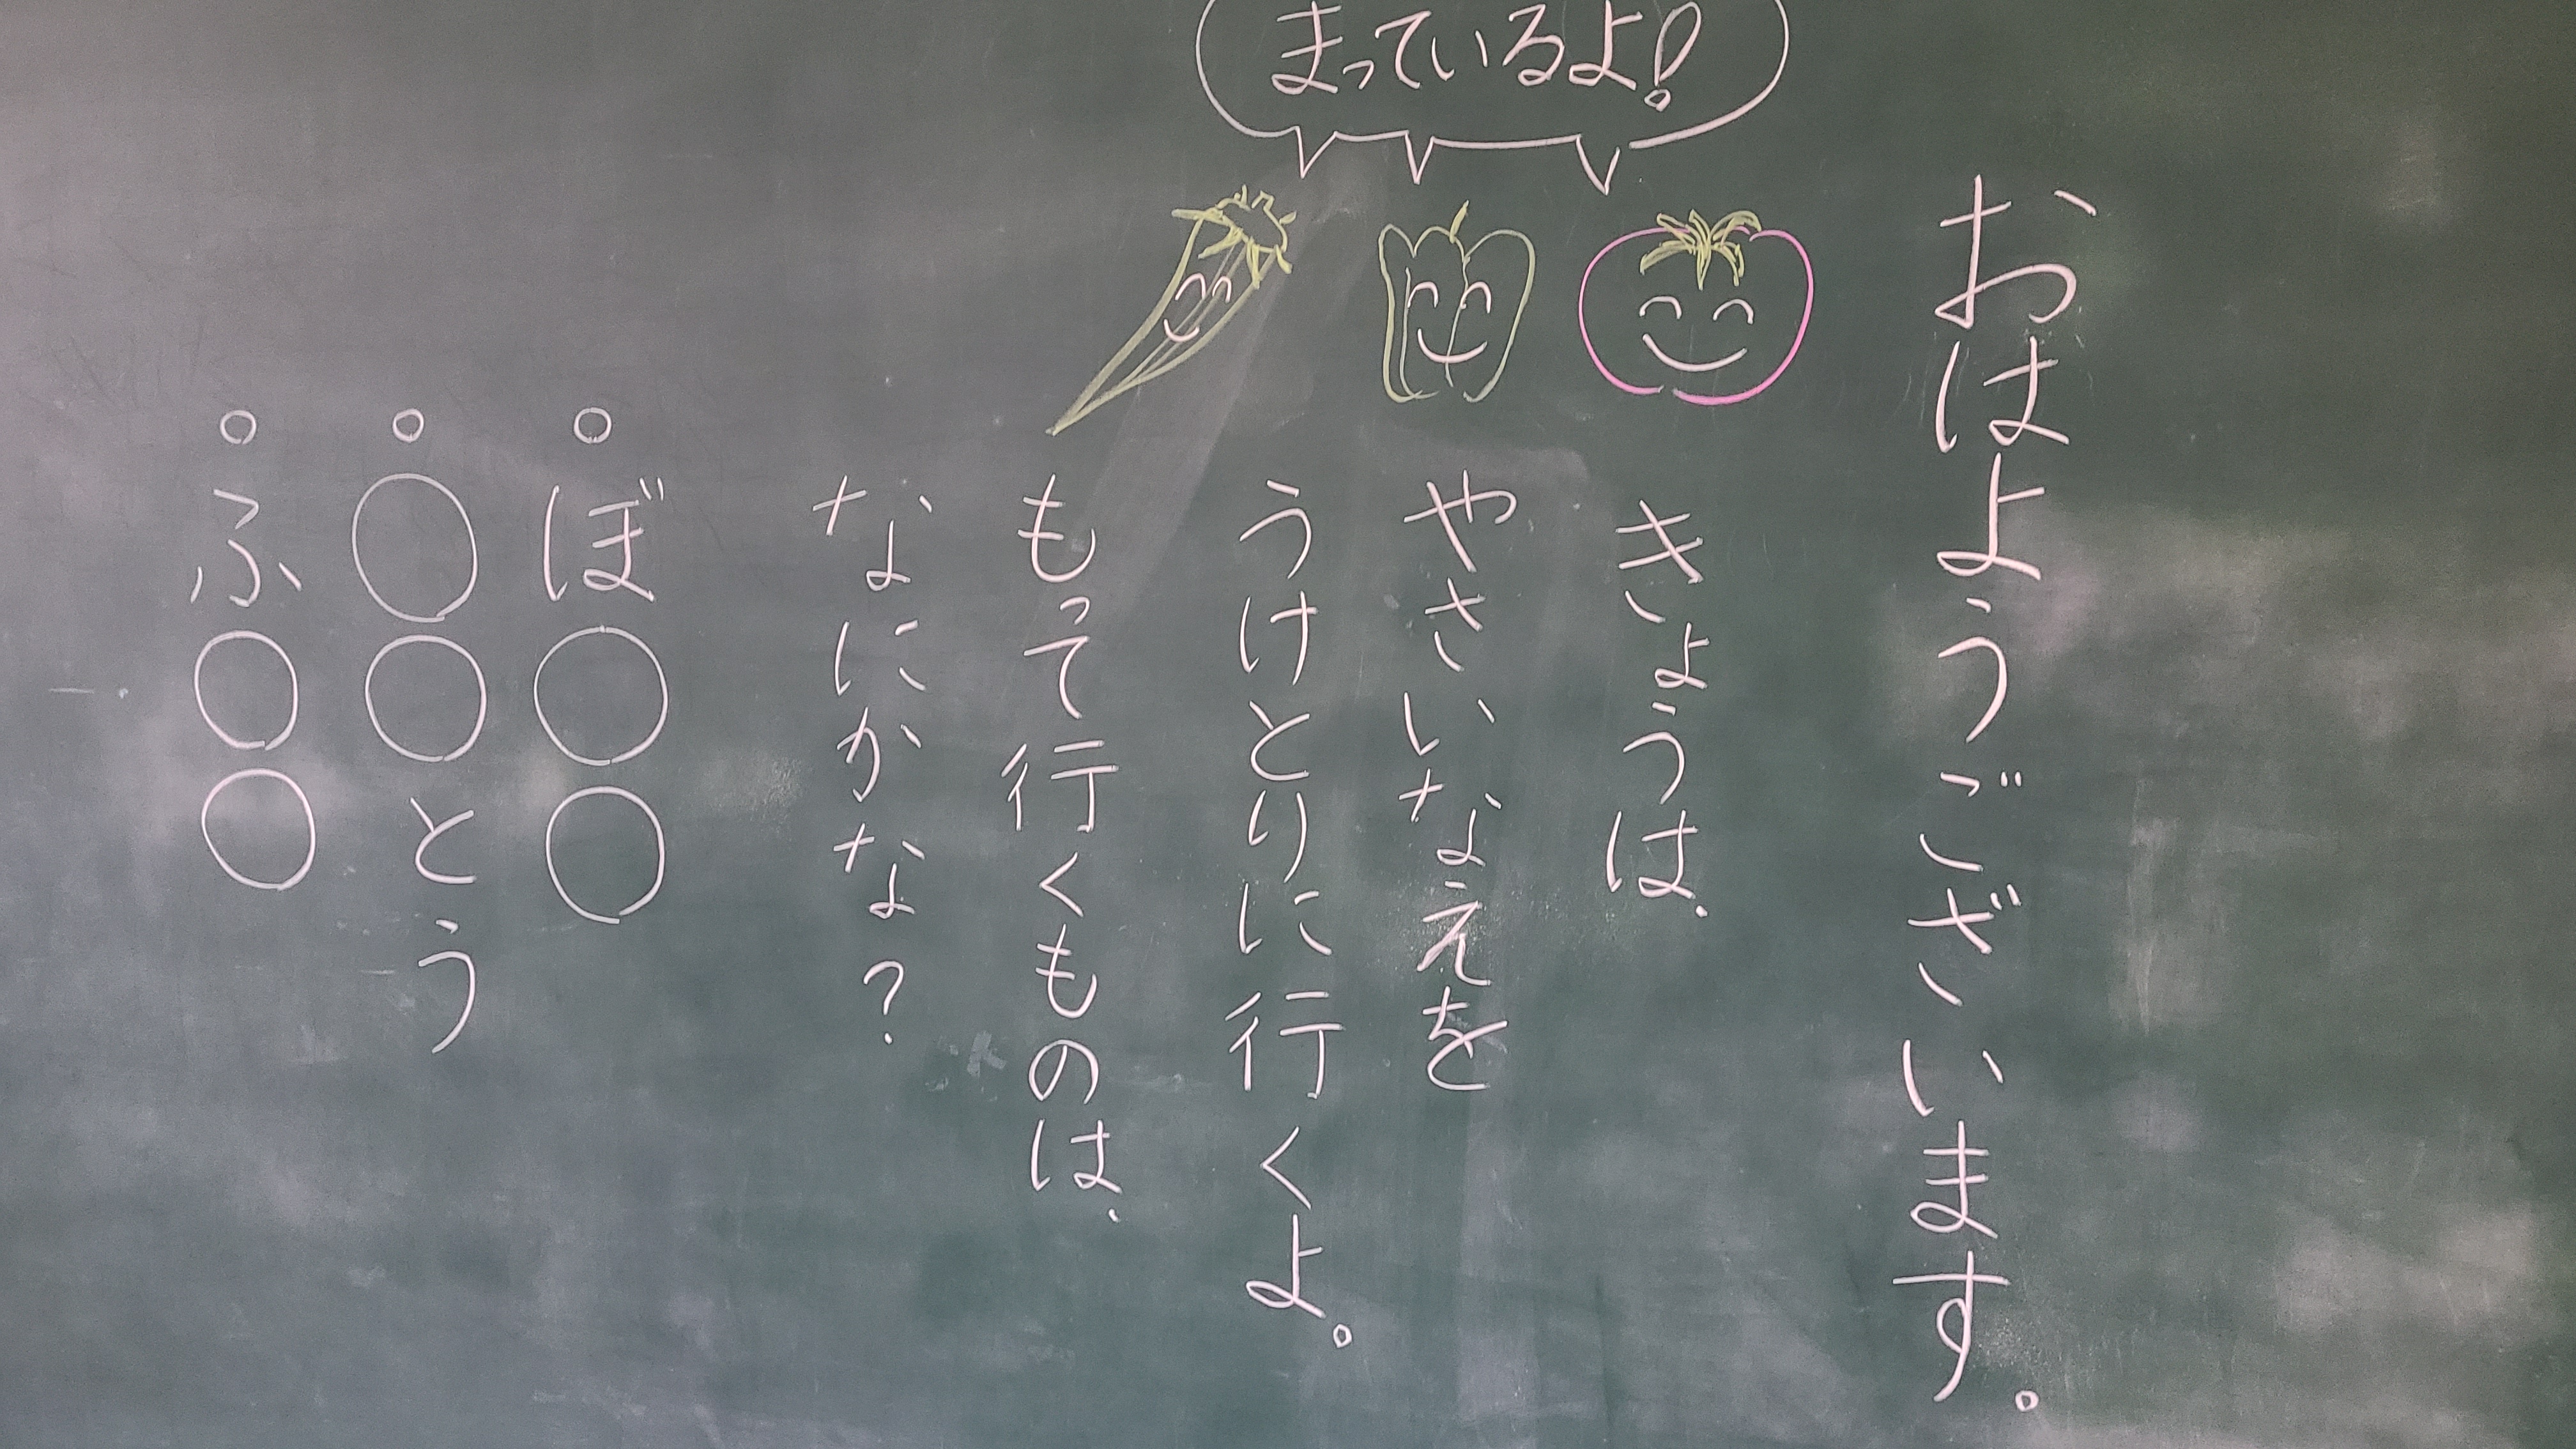 まっているよ!
おはようございます。
きょうは、
やさいなえを
うけとりに行くよ。
もって行くものは、
なにかな?
○ぼ○○
○○○とう
○ふ○○